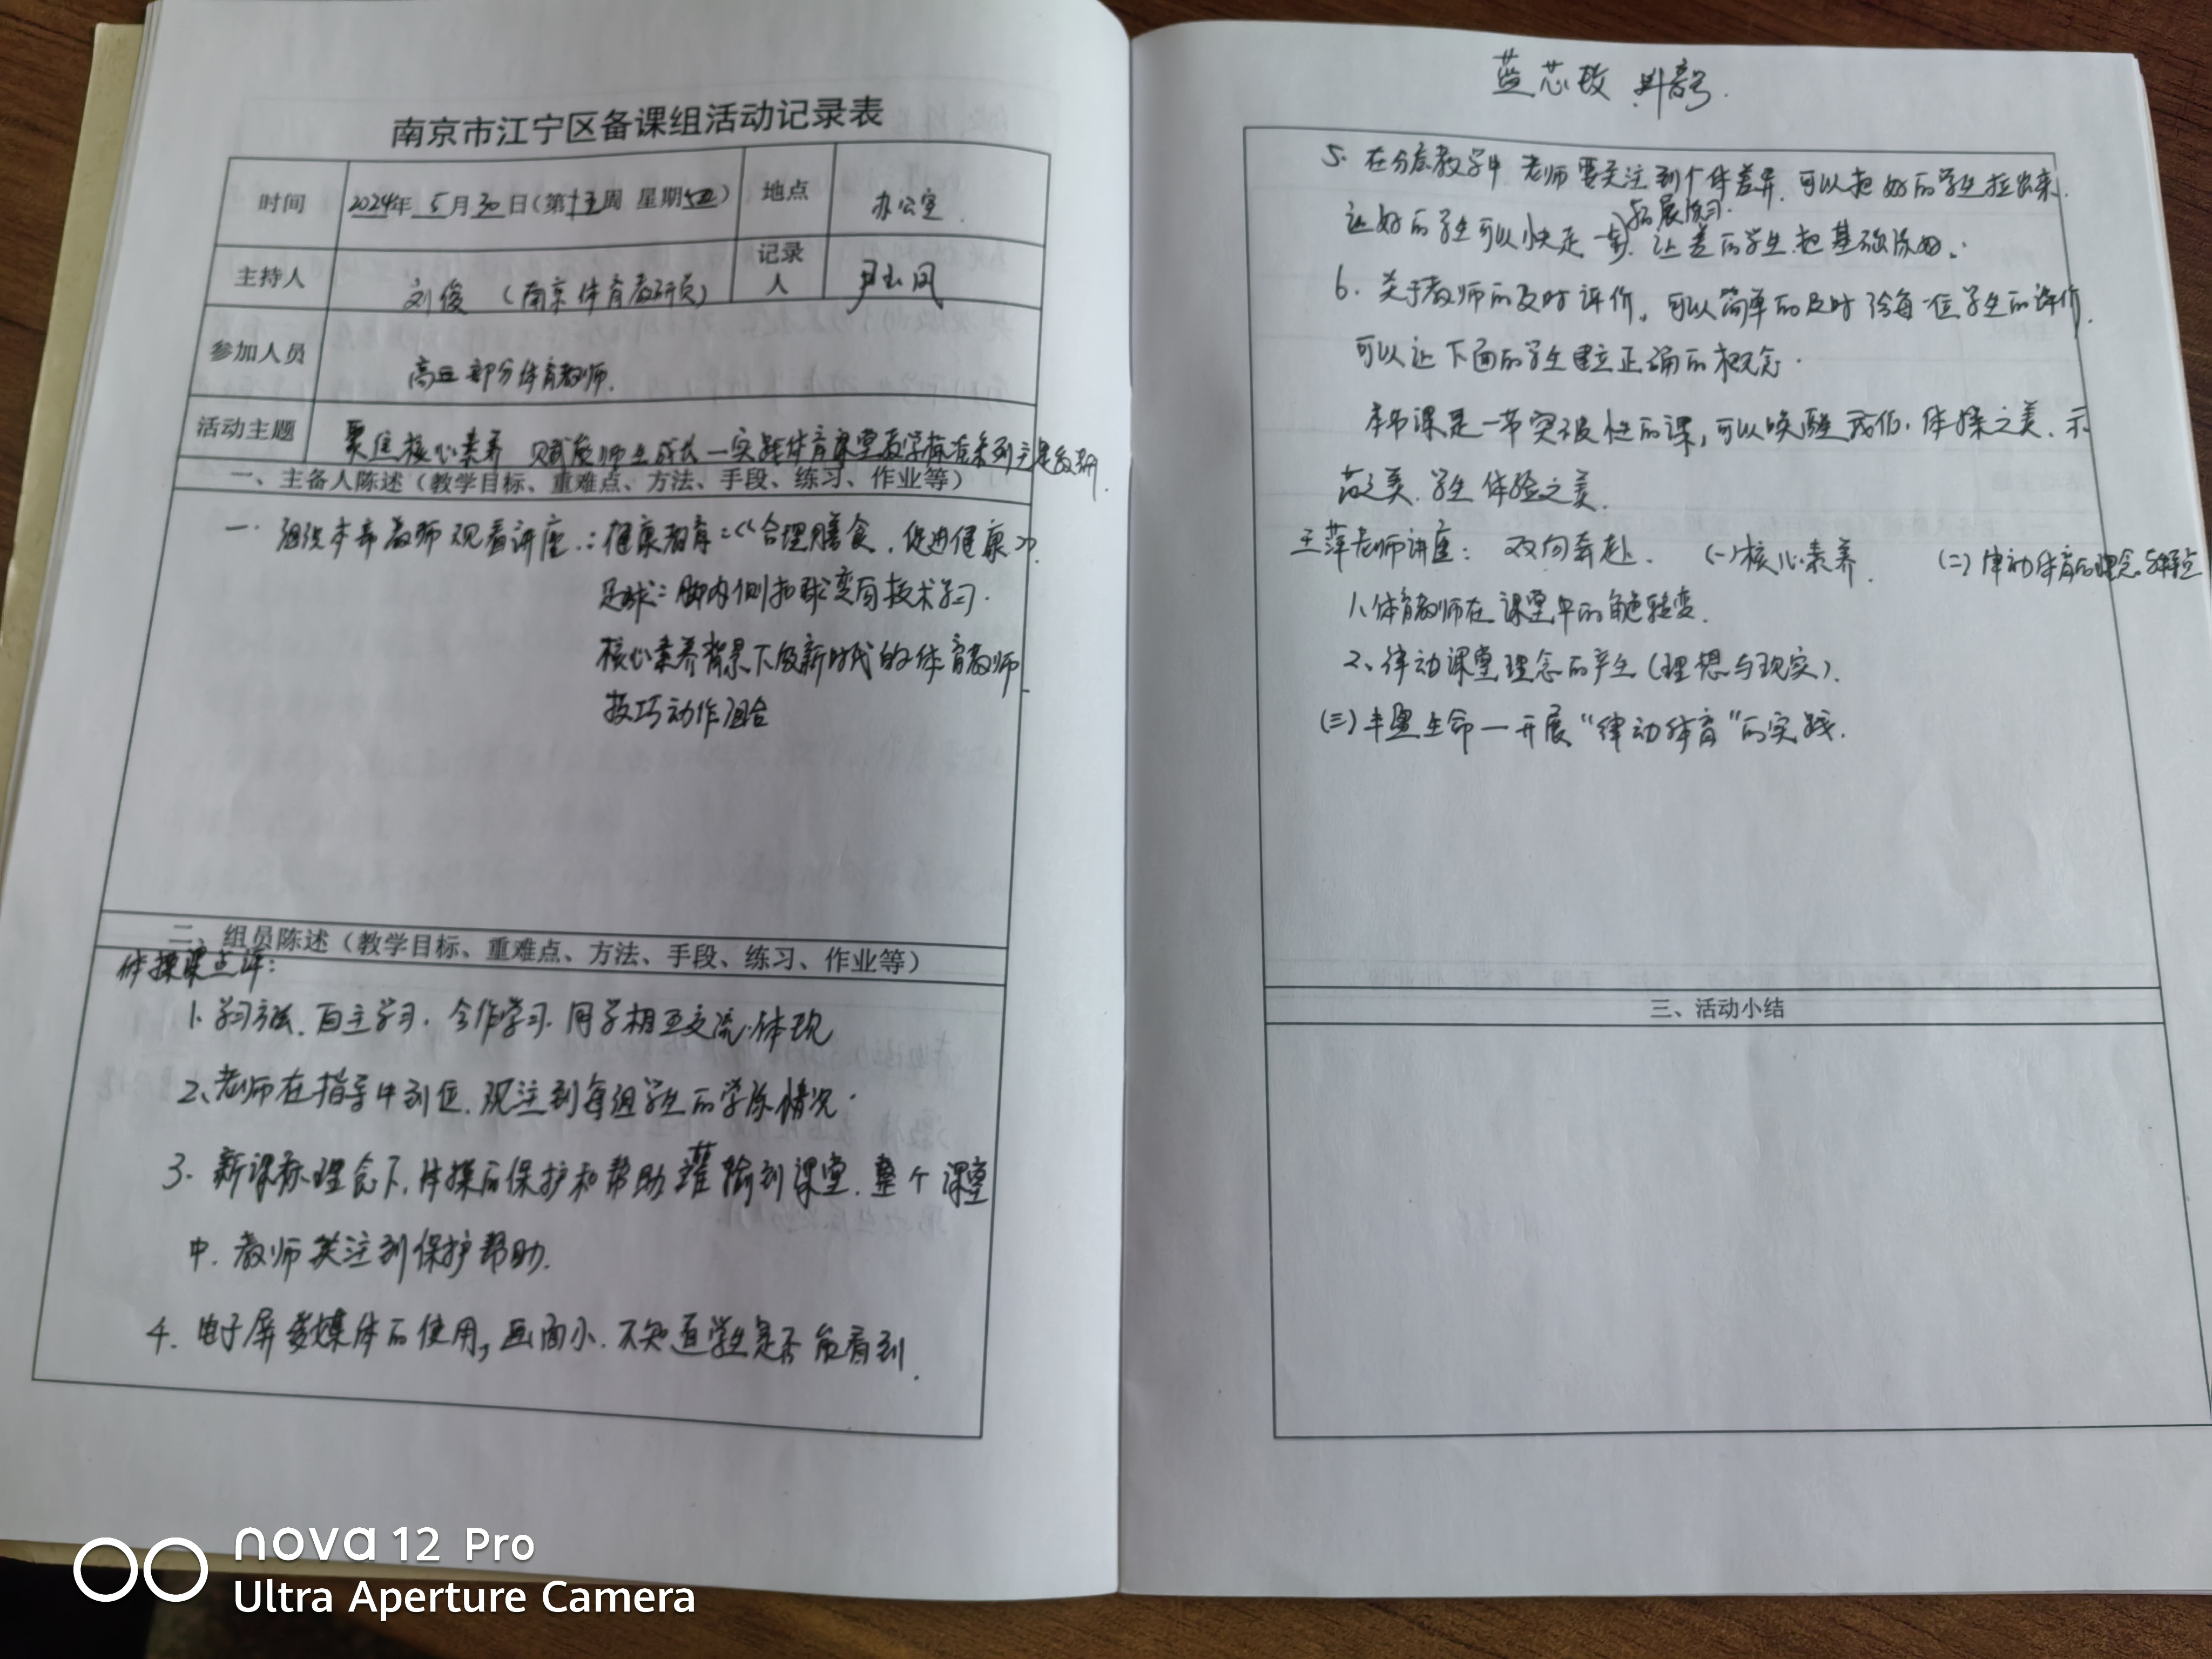 南京市江宁区备课组活动记录表
时间 2024年 5月30日(第十五周 星期四) 地点 办公室
主持人 刘俊 (南京体育教研员) 记录人 尹玉凤
参加人员 高三部分体育教师.
活动主题 聚焦核心素养 赋能师生成长—实践体育课堂教学标准系列主题教研.
一、主备人陈述(教学目标、重难点、方法、手段、练习、作业等)
一. 组织本市教师观看讲座.:健康教育:《合理膳食,促进健康》.
足球:脚内侧扣球变向技术学习.
核心素养背景下做新时代的体育教师
技巧动作组合
二、组员陈述(教学目标、重难点、方法、手段、练习、作业等)
体操课点评:
1、学习方法、自主学习、合作学习、同学相互交流.体现
2、老师在指导中到位.观注到每组学生的学练情况.
3. 新课标理念下,体操的保护和帮助灌输到课堂.整个课堂
中.教师关注到保护帮助.
4. 电子屏多媒体的使用,画面小.不知道学生是否能看到.
蓝芯玫
5. 在分层教学中 老师要关注到个体差异.可以把好的学生拉出来.
拓展练习.
让好的学生可以快走一步.让差的学生把基础练好.
6. 关于教师的及时评价.可以简单的及时给每一位学生的评价.
可以让下面的学生建立正确的概念.
本节课是一节突破性的课,可以唤醒我们.体操之美.示
范之美.学生体验之美.
王萍老师讲座: 双向奔赴. (一)核心素养. (二)律动体育的理念与特点
1、体育教师在课堂中的角色转变.
2、律动课堂理念的产生(理想与现实).
(三)丰盈生命—开展“律动体育”的实践.
三、活动小结
nova 12 Pro
Ultra Aperture Camera